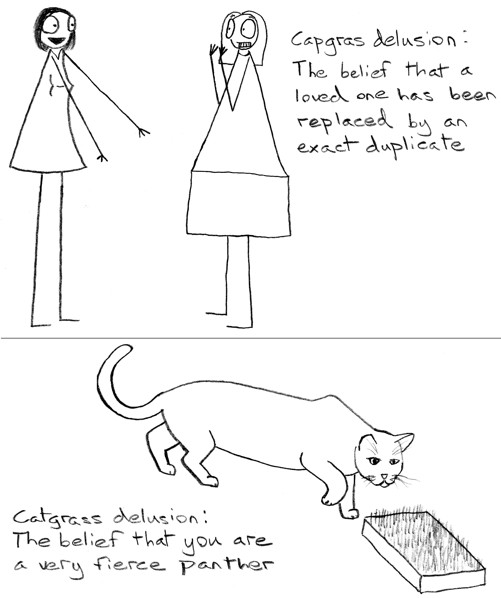 Capgras delusion:
The belief that a
loved one has been
replaced by an
exact duplicate
Catgrass delusion:
The belief that you are
a very fierce panther